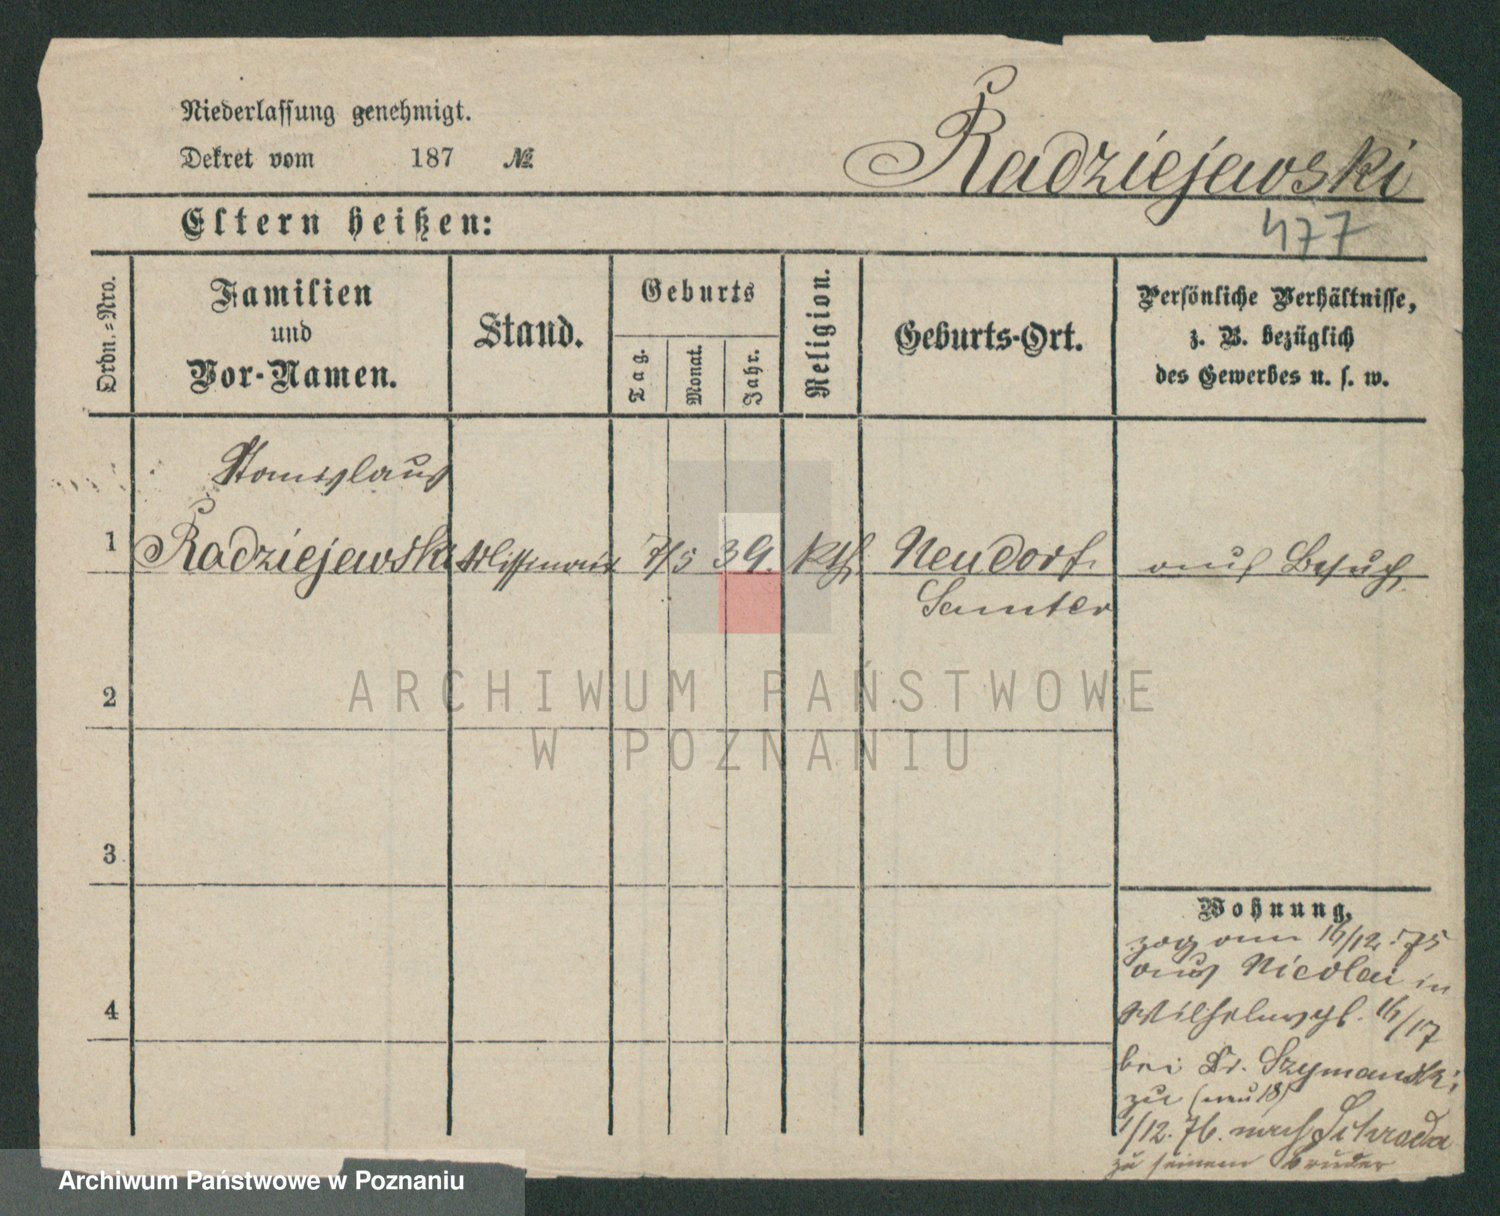 Niederlassung genehmigt.
Dekret vom 187 №
Radziejewski
477
Eltern heißen:
Ordn.-Nro.
Familien
und
Vor-Namen.
Stand.
Geburts
Tag.
Monat.
Jahr.
Religion.
Geburts-Ort.
Persönliche Verhältnisse,
z. B. bezüglich
des Gewerbes u. s. w.
Stanislaus
1 Radziejewski 7/5 39. kth. Neudorf auf Besuch.
Samter
2
3
4
Wohnung.
zog am 16/12. 75
aus Nicolai in
Wilhelmspl. 16/17
bei Dr. Szymanski
zu (neu 18)
1/12. 76. nach Schroda
zu seinem Bruder
ARCHIWUM PAŃSTWOWE
W POZNANIU
Archiwum Państwowe w Poznaniu